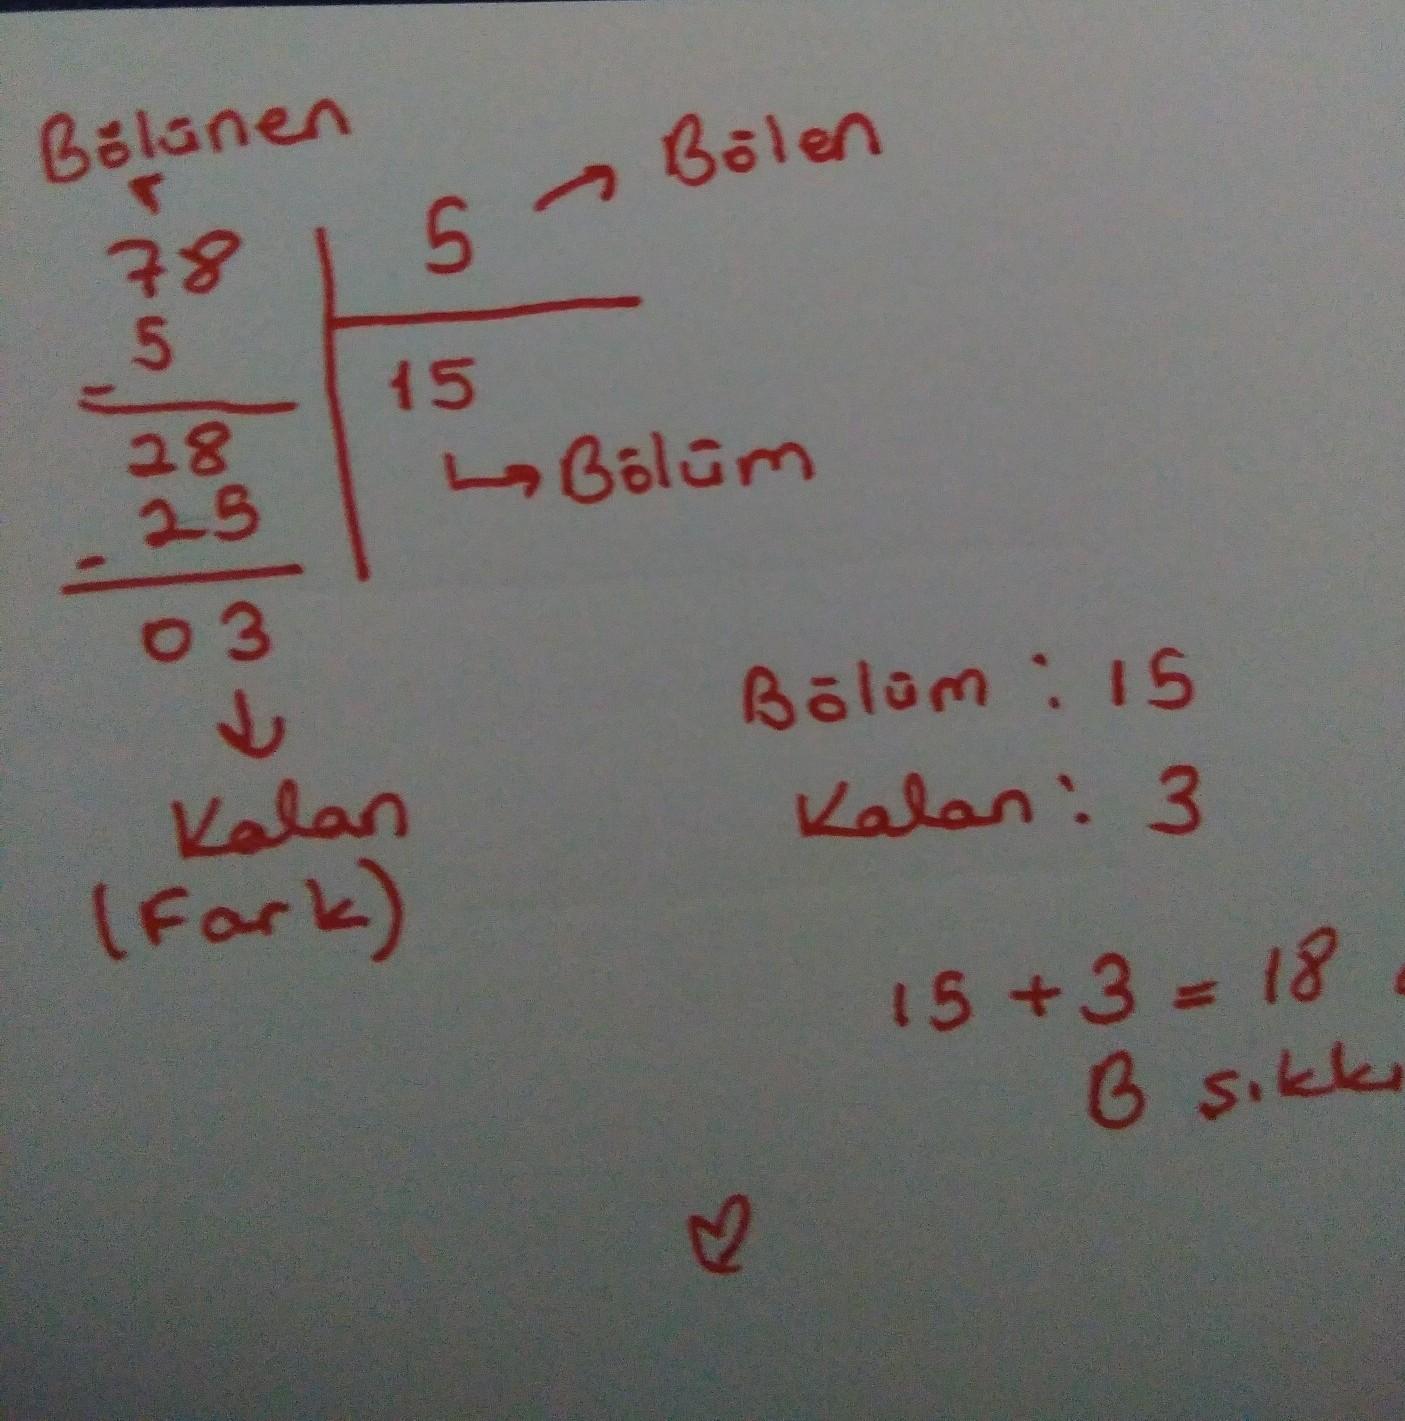 Bölünen
78
5 → Bölen
- 5
15
28
↳ Bölüm
- 25
03
↓
Kalan
(Fark)
Bölüm : 15
Kalan : 3
15 + 3 = 18
B şıkkı